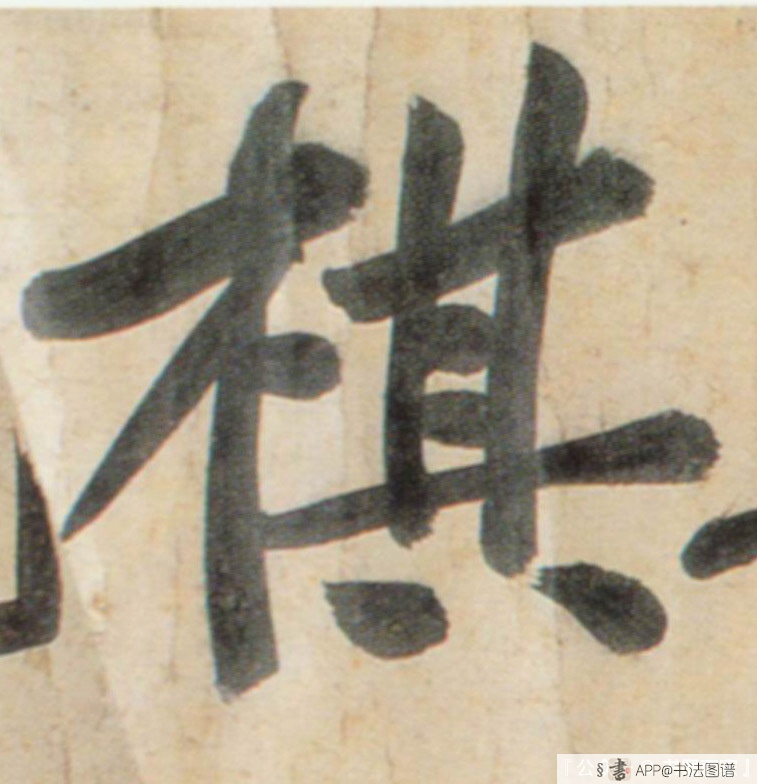 棋
APP@书法图谱